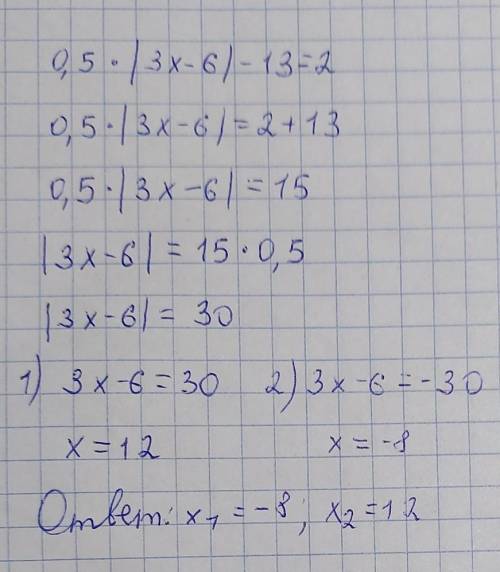 0,5 · |3x-6| - 13 = 2
0,5 · |3x-6| = 2 + 13
0,5 · |3x-6| = 15
|3x-6| = 15 · 0,5
|3x-6| = 30
1) 3x-6 = 30 2) 3x-6 = -30
x = 12 x = -8
Ответ: x₁ = -8; x₂ = 12